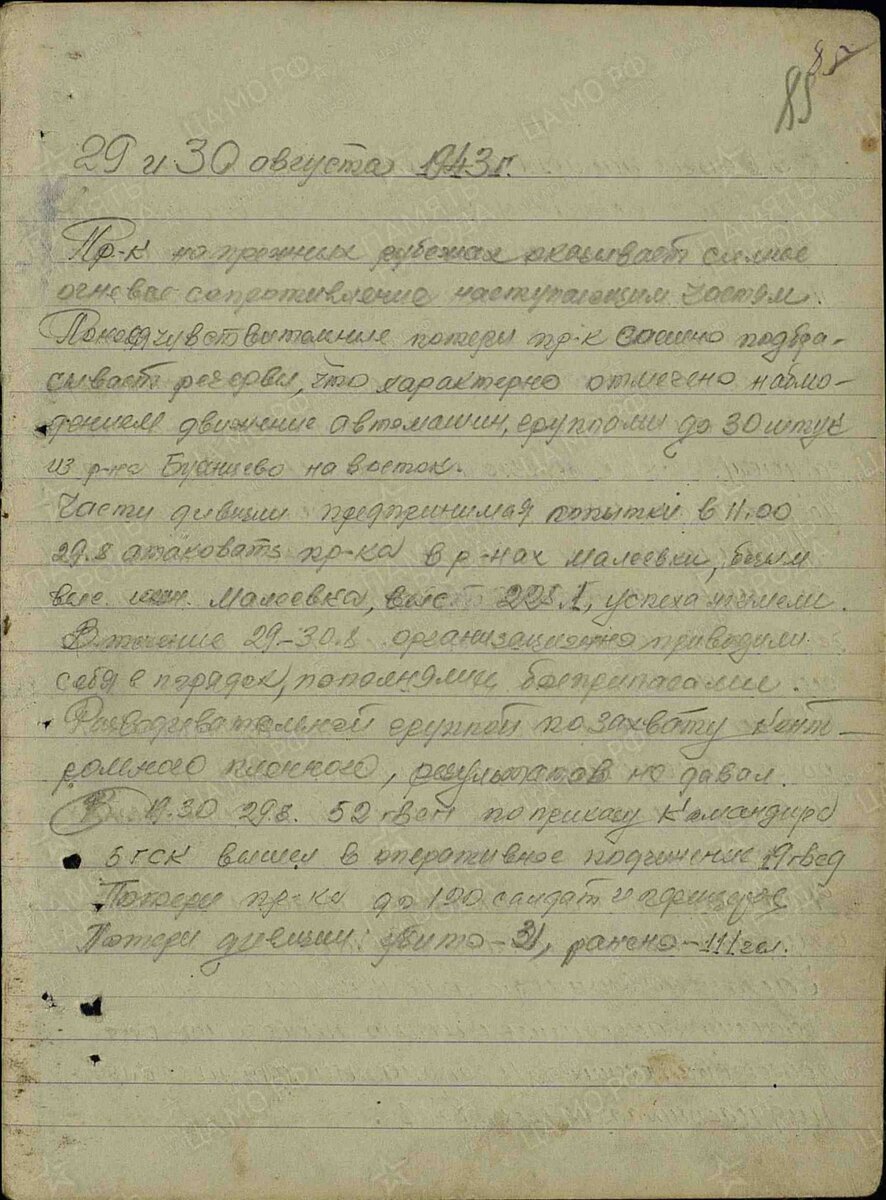 85
85
29 и 30 августа 1943 г.
Пр-к на прежних рубежах оказывает сильное
огневое сопротивление наступающим частям.
чувствительные потери пр-к подбра-
сывает резервы, что характерно отмечено наблю-
дением движение автомашин, группами до 30 штук
из р-на на восток.
Части дивизии предпринимая попытки в 11.00
29.8 атаковать пр-ка в р-нах Малеевки,
выс. Малеевка, выс. успеха не имели.
В течение 29-30.8 приводили
себя в порядок, пополнялись боеприпасами.
Разведывательной группой по захвату конт-
рольного пленного, результатов не давал.
В 19.30 29.8. 52 гвсп по приказу Командира
5 гск вышел в оперативное подчинение 19 гвсд
Потери пр-ка до 100 солдат и офицеров
Потери дивизии: убито - 31, ранено - 111 чел.